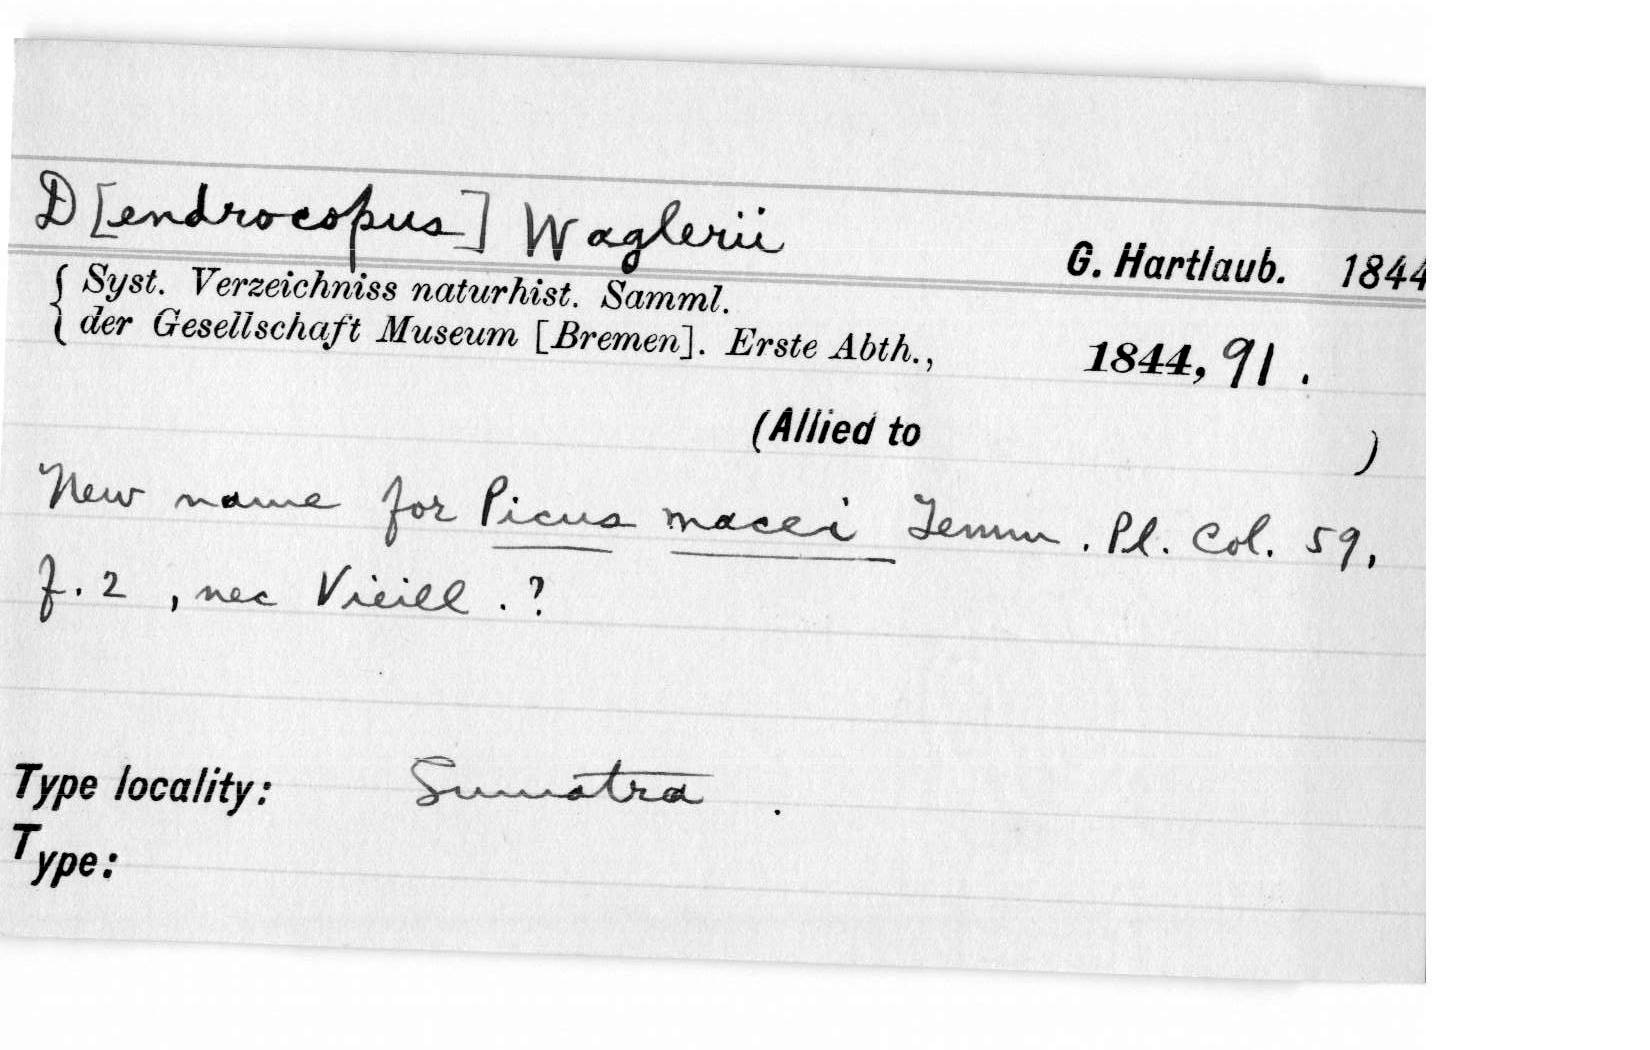 D[endrocopus] Waglerii G. Hartlaub. 1844
{ Syst. Verzeichniss naturhist. Samml.
der Gesellschaft Museum [Bremen]. Erste Abth., 1844, 91.
(Allied to )
New name for Picus macei Temm. Pl. Col. 59,
f. 2, nec Vieill. ?
Type locality: Sumatra.
Type: